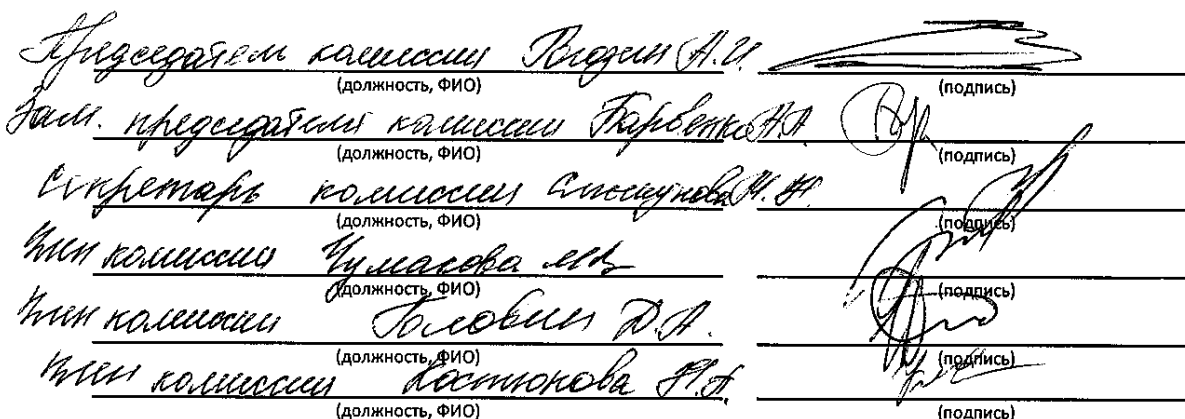 Председатель комиссии Погодин А.И.
(должность, ФИО) (подпись)
Зам. председателя комиссии Барвенко А.А.
(должность, ФИО) (подпись)
Секретарь комиссии Н.Н.
(должность, ФИО) (подпись)
Член комиссии Чумакова
(должность, ФИО) (подпись)
Член комиссии Головин Д.А.
(должность, ФИО) (подпись)
Член комиссии Костюкова Н.А.
(должность, ФИО) (подпись)